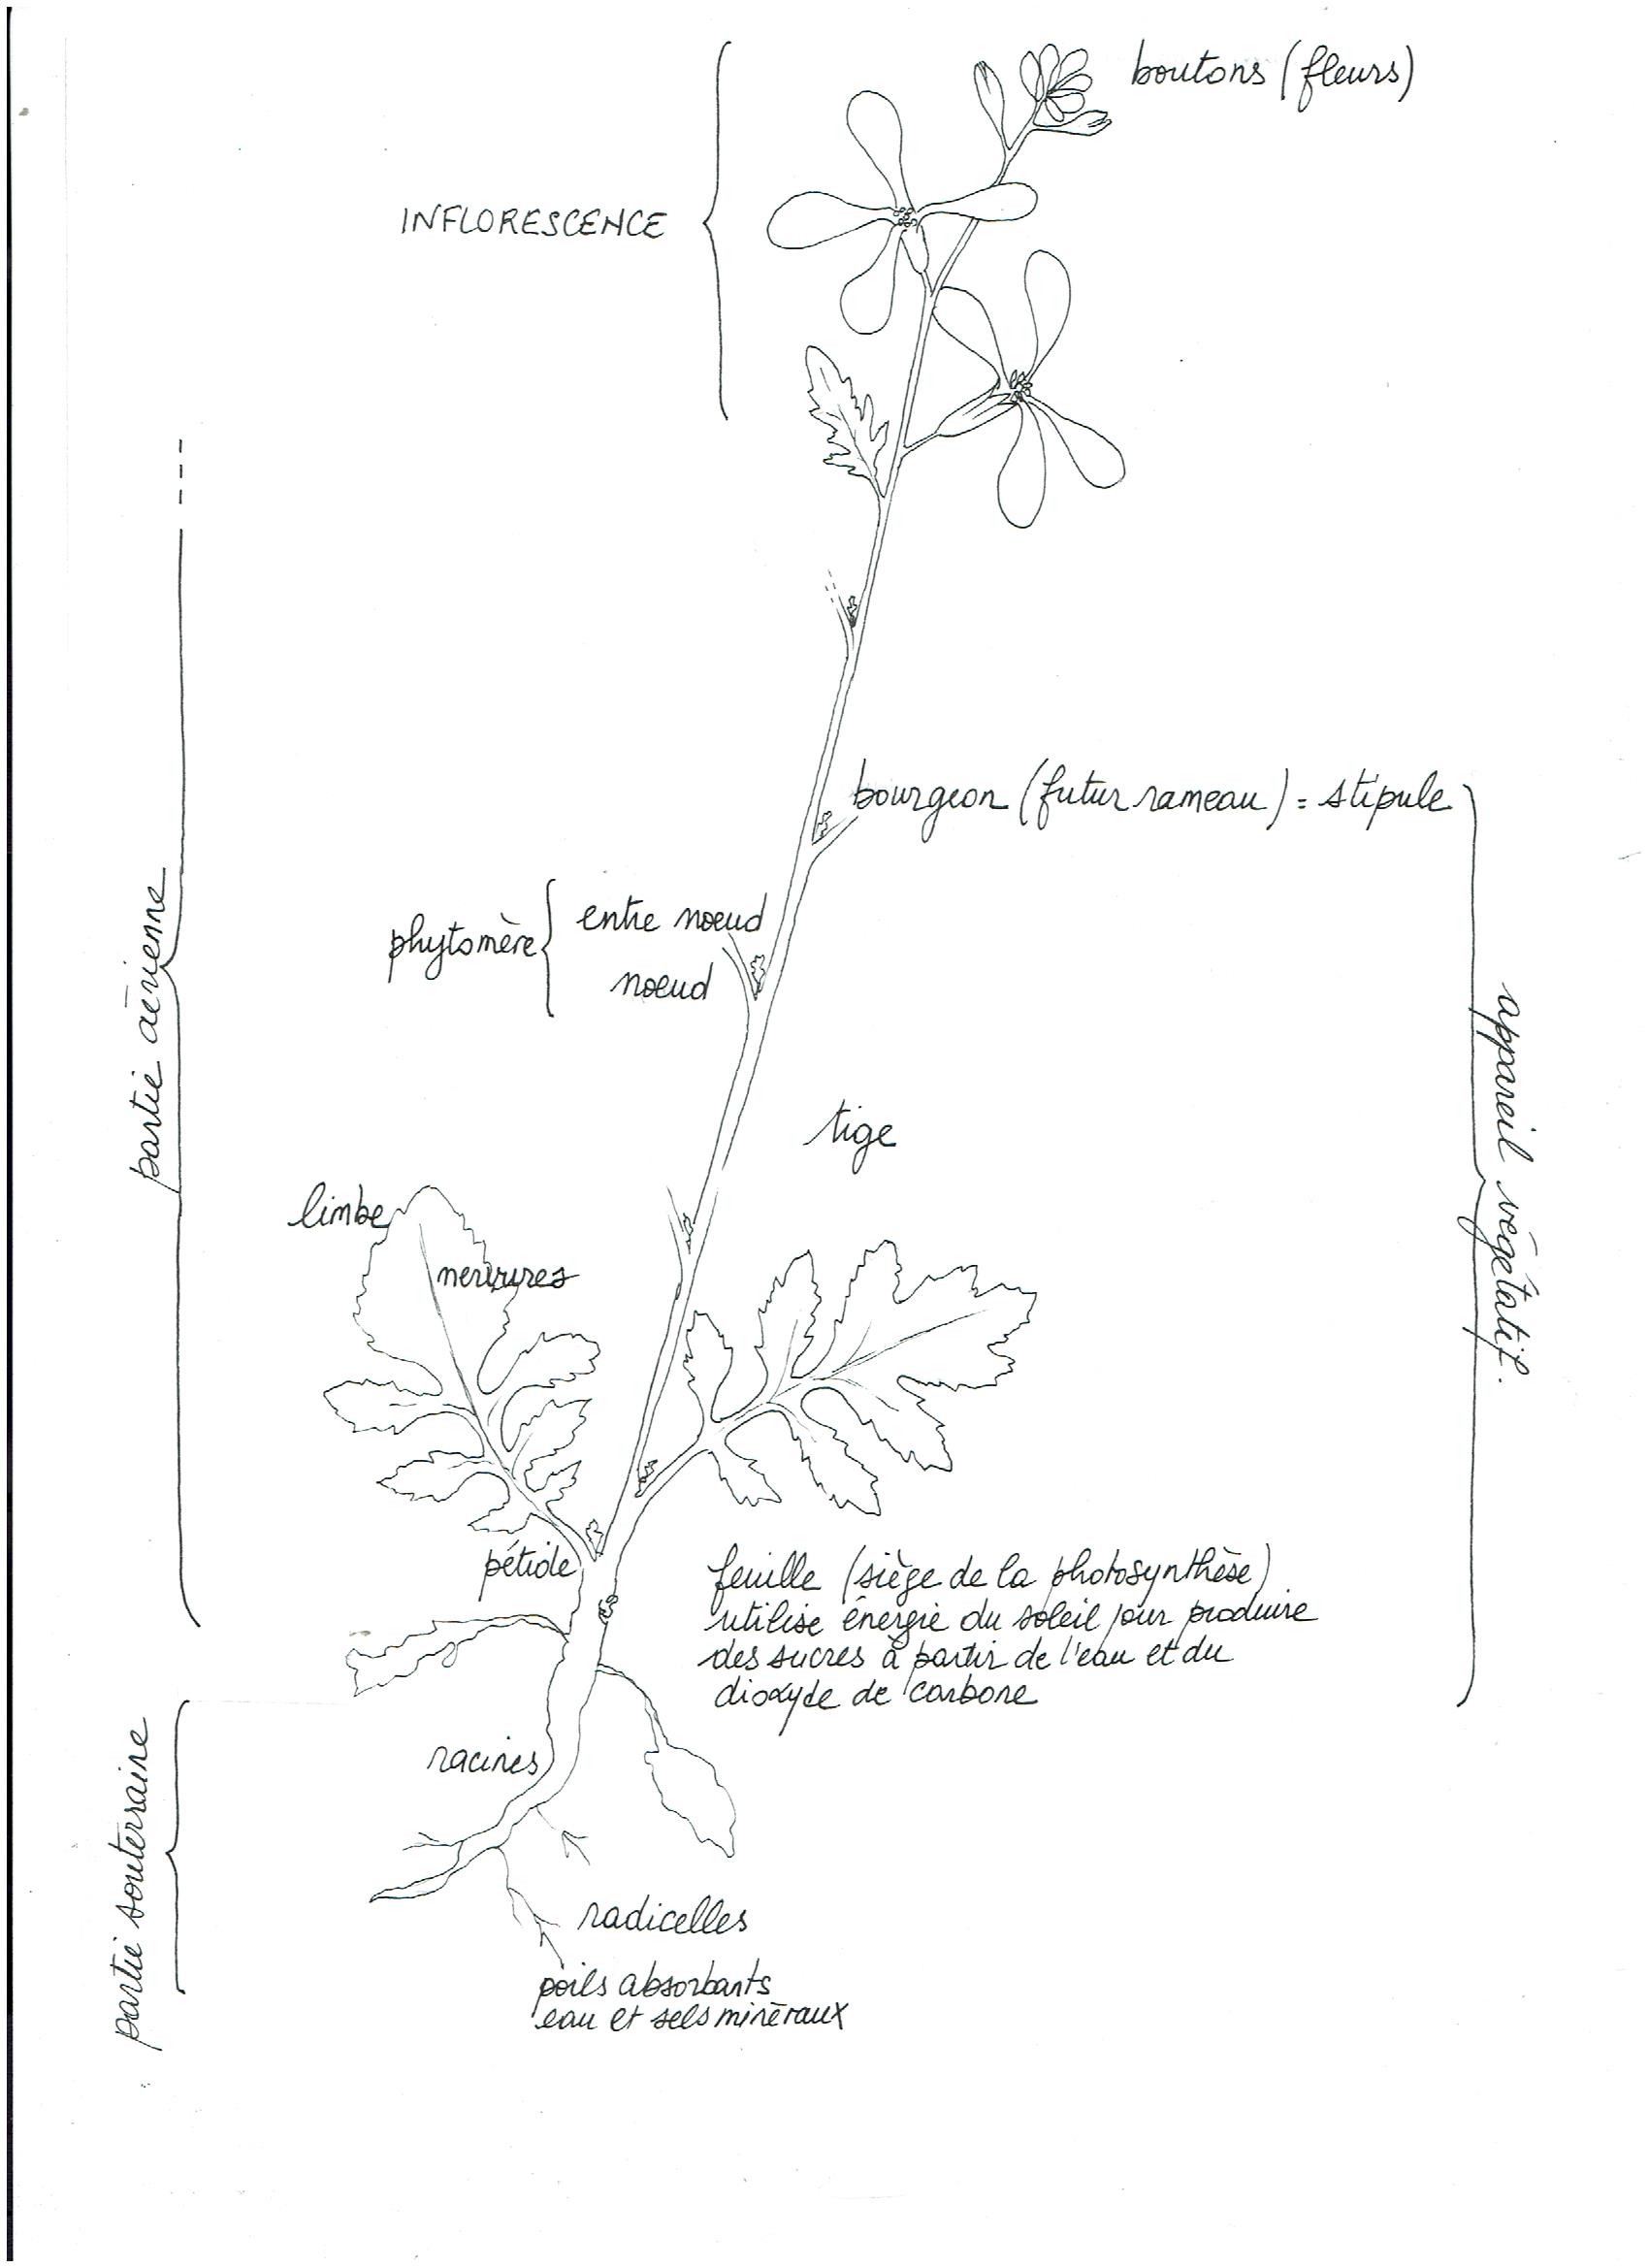 boutons (fleurs)
INFLORESCENCE
bourgeon (futur rameau) = stipule
phytomère
entre noeud
noeud
partie aérienne
appareil végétatif.
tige
limbe
nervures
pétiole
feuille (siège de la photosynthèse)
utilise énergie du soleil pour produire
des sucres à partir de l'eau et du
dioxyde de carbone
racines
partie souterraine
radicelles
poils absorbants
eau et sels minéraux